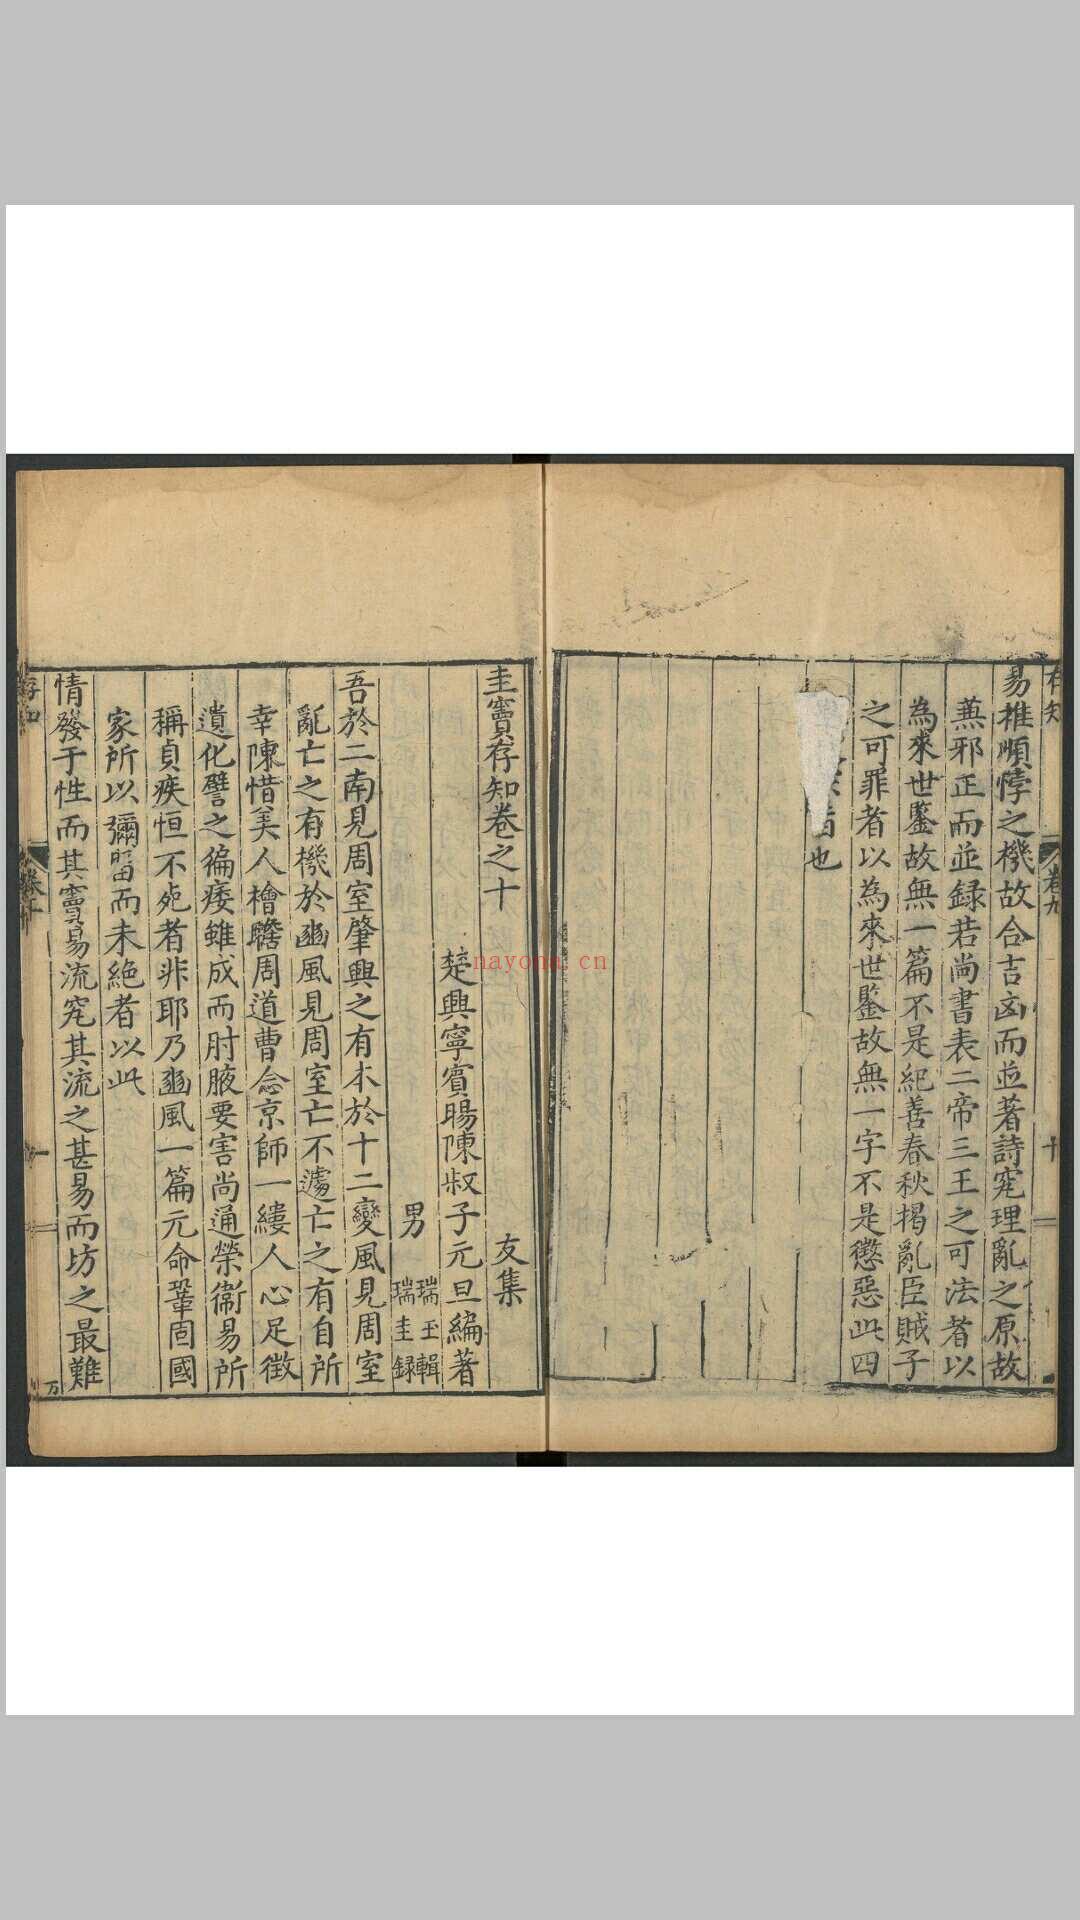 存知
卷九
十
易推順悖之機故合吉凶而並著詩究理亂之原故
蕪邪正而並録若尚書表二帝三王之可法者以
為來世鑒故無一篇不是紀善春秋揭亂臣賊子
之可罪者以為來世鑒故無一字不是懲惡此四
者也
圭竇存知卷之十
友集
楚興寧賓暘陳叔子元旦編著
男
瑞玉輯
瑞圭録
吾於二南見周室肇興之有本於十二變風見周室
亂亡之有機於豳風見周室亡不遽亡之有自所
幸陳惜美人檜瞻周道曹念京師一縷人心足徵
遺化譬之徧痿雖成而肘腋要害尚通榮衞易所
稱貞疾恒不死者非耶乃豳風一篇元命鞏固國
家所以彌留而未絶者以此
情發于性而其竇易流究其流之甚易而坊之最難
存知
卷十
一
万
nayona.cn